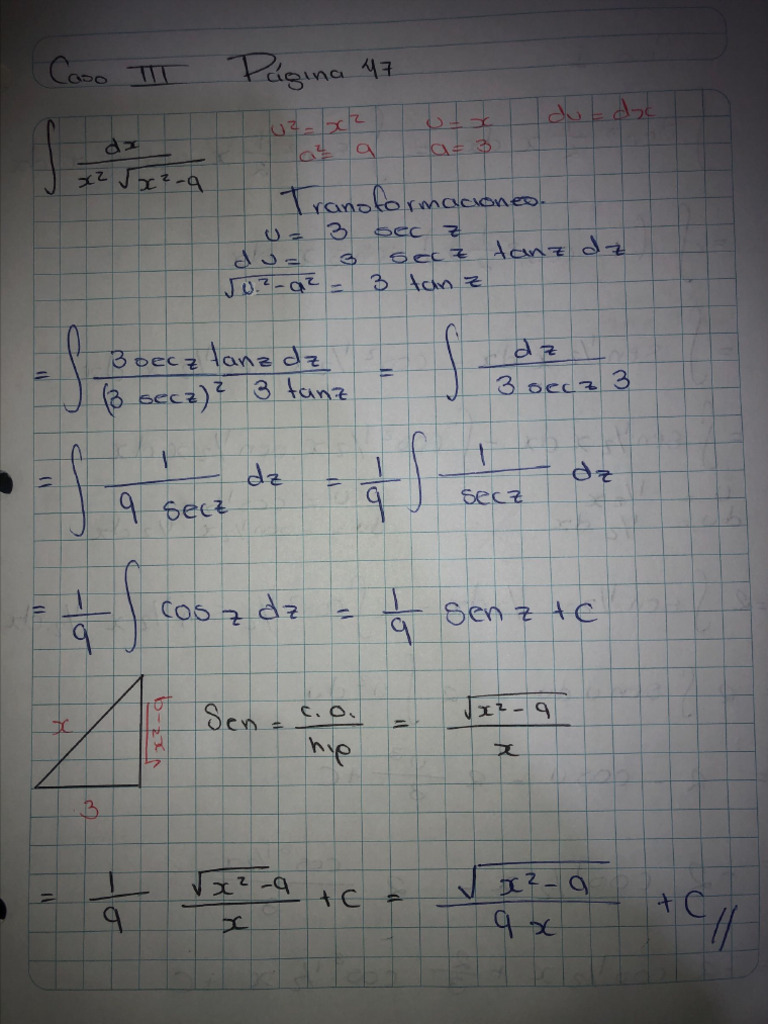 Caso III Página 47
∫ dx / x² √x²-9 u² = x² u = x du = dx
a² = 9 a = 3
Transformaciones.
u = 3 sec z
du = 3 sec z tan z dz
√u²-a² = 3 tan z
= ∫ 3 sec z tan z dz / (3 sec z)² 3 tan z = ∫ dz / 3 sec z 3
= ∫ 1 / 9 sec z dz = 1/9 ∫ 1 / sec z dz
= 1/9 ∫ cos z dz = 1/9 Sen z + C
x √x²-9 Sen = c.o. / hip = √x²-9 / x
3
= 1/9 √x²-9 / x + C = √x²-9 / 9x + C //